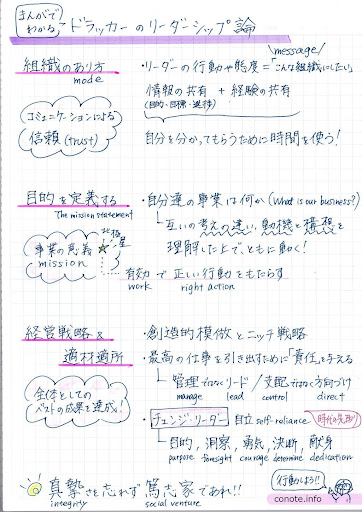 まんがで
わかる
ドラッカーのリーダーシップ論
message
組織のあり方
mode
・リーダーの行動や態度=「こんな組織にしたい」
情報の共有 + 経験の共有
(目的・目標・進捗)
コミュニケーションによる
信頼(trust)
自分を分かってもらうために時間を使う!
目的を定義する
The mission statement
・自分達の事業は何か(What is our business?)
互いの考えの違い、動機と構想を
理解した上で、ともに動く!
北極星
事業の意義
mission
有効で正しい行動をもたらす
work right action
経営戦略&
適材適所
・創造的模倣とニッチ戦略
・最高の仕事を引き出すために「責任」を与える
管理ではなくリード/支配ではなく方向づけ
manage lead control direct
全体としての
ベストの成果を達成!
チェンジ・リーダー 自立 self-reliance 時代の先取り
目的, 洞察, 勇気, 決断, 献身
purpose foresight courage determine dedication
真摯さを忘れず篤志家であれ!!
integrity social venture
行動しよう!!
conote.info